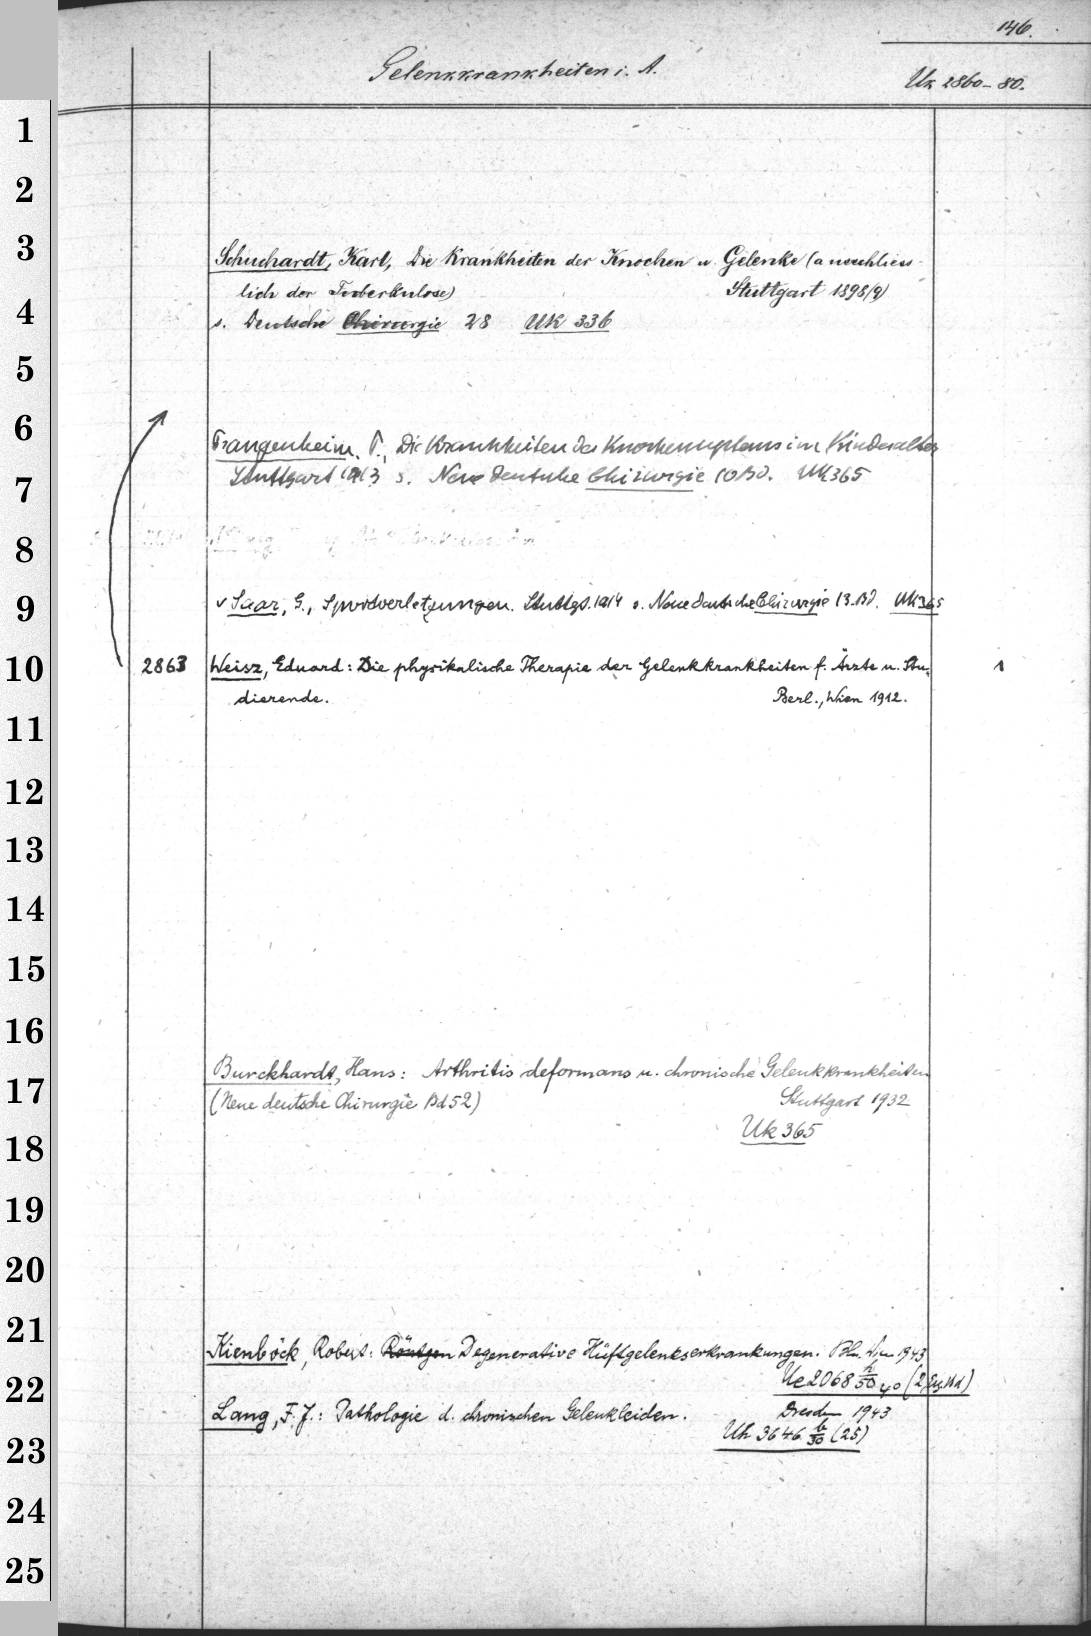 146.
Gelenkkrankheiten i. A.
Uk 2860-80.
Schuchardt, Karl, Die Krankheiten der Knochen u Gelenke (ausschliess-
lich der Tuberkulose) Stuttgart 1898(9)
s. Deutsche Chirurgie 28 Uk 336
Frangenheim, P., Die Krankheiten des Knochensystems im Kindesalter
Stuttgart 1913 s. Neue Deutsche Chirurgie 10 Bd. Uk 365
v Saar, G., Sportverletzungen. Stuttg. 1914 s. Neue deutsche Chirurgie 13. Bd. Uk 365
2863 Weisz, Eduard: Die physikalische Therapie der Gelenkkrankheiten f. Ärzte u. Stu- 1
dierende. Berl., Wien 1912.
Burckhardt, Hans: Arthritis deformans u. chronische Gelenkkrankheiten
(Neue deutsche Chirurgie Bd 52) Stuttgart 1932
Uk 365
Kienböck, Robert: Röntgen Degenerative Hüftgelenkserkrankungen. 1943
Ue 2068 h/50 40 (2
Lang, F. J.: Pathologie d. chronischen Gelenkleiden. Dresden 1943
Uk 3646 b/30 (25)
1
2
3
4
5
6
7
8
9
10
11
12
13
14
15
16
17
18
19
20
21
22
23
24
25